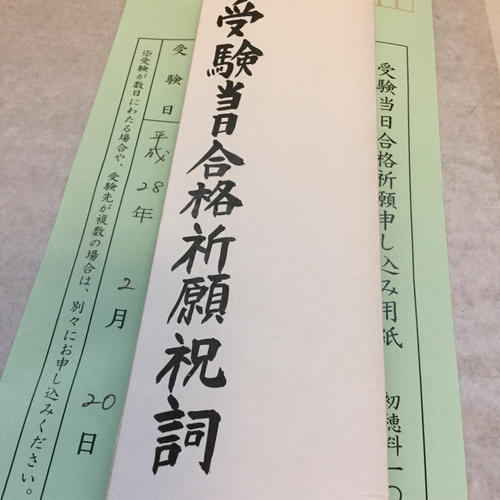 受験当日合格祈願申し込み用紙
初穂料一〇
受験当日合格祈願祝詞
受験日
平成28年2月20日
※受験が数日にわたる場合や、受験先が複数の場合は、別々にお申し込みください。